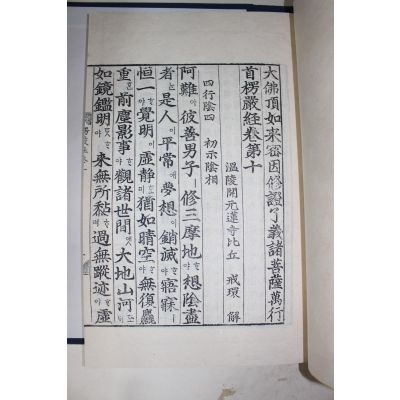 大佛頂如來密因修證了義諸菩薩萬行
首楞嚴經卷第十
溫陵開元蓮寺比丘 戒環 解
四行陰四 初示陰相
阿難 彼善男子ㅣ 修三摩地ᄒᆞ야 想陰盡
者ᄂᆞᆫ 是人이 平常애 夢想이 銷滅ᄒᆞ야 寤寐ㅣ
恒一ᄒᆞ야 覺明이 虛靜 猶如晴空ᄒᆞ야 無復麤
重 前塵影事ᄒᆞ야 觀諸世間앳 大地山河
如鏡鑑明ᄒᆞ야 來無所黏ᄒᆞ며 過無蹤迹ᄒᆞ야 虛